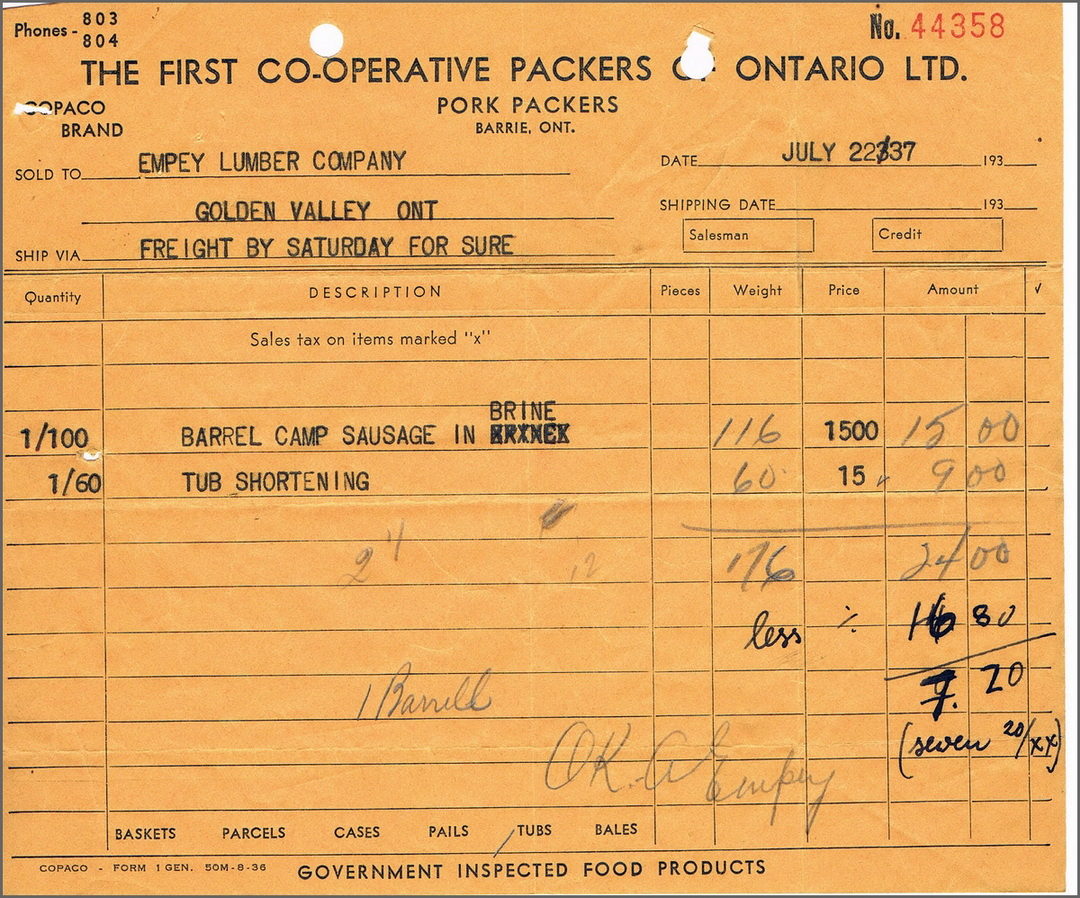 Phones - 803
804
No. 44358
THE FIRST CO-OPERATIVE PACKERS OF ONTARIO LTD.
COPACO
BRAND
PORK PACKERS
BARRIE, ONT.
SOLD TO EMPEY LUMBER COMPANY
DATE JULY 22/37 193
GOLDEN VALLEY ONT
SHIPPING DATE 193
Salesman Credit
SHIP VIA FREIGHT BY SATURDAY FOR SURE
Quantity DESCRIPTION Pieces Weight Price Amount ✓
Sales tax on items marked "x"
BRINE
1/100 BARREL CAMP SAUSAGE IN 116 1500 15 00
1/60 TUB SHORTENING 60 15 9 00
24 12 176 24 00
less % 16 80
7. 20
1 Barrell
(seven 20/xx)
OK. A E Empey
BASKETS PARCELS CASES PAILS / TUBS BALES
COPACO - FORM 1 GEN. 50M-8-36
GOVERNMENT INSPECTED FOOD PRODUCTS